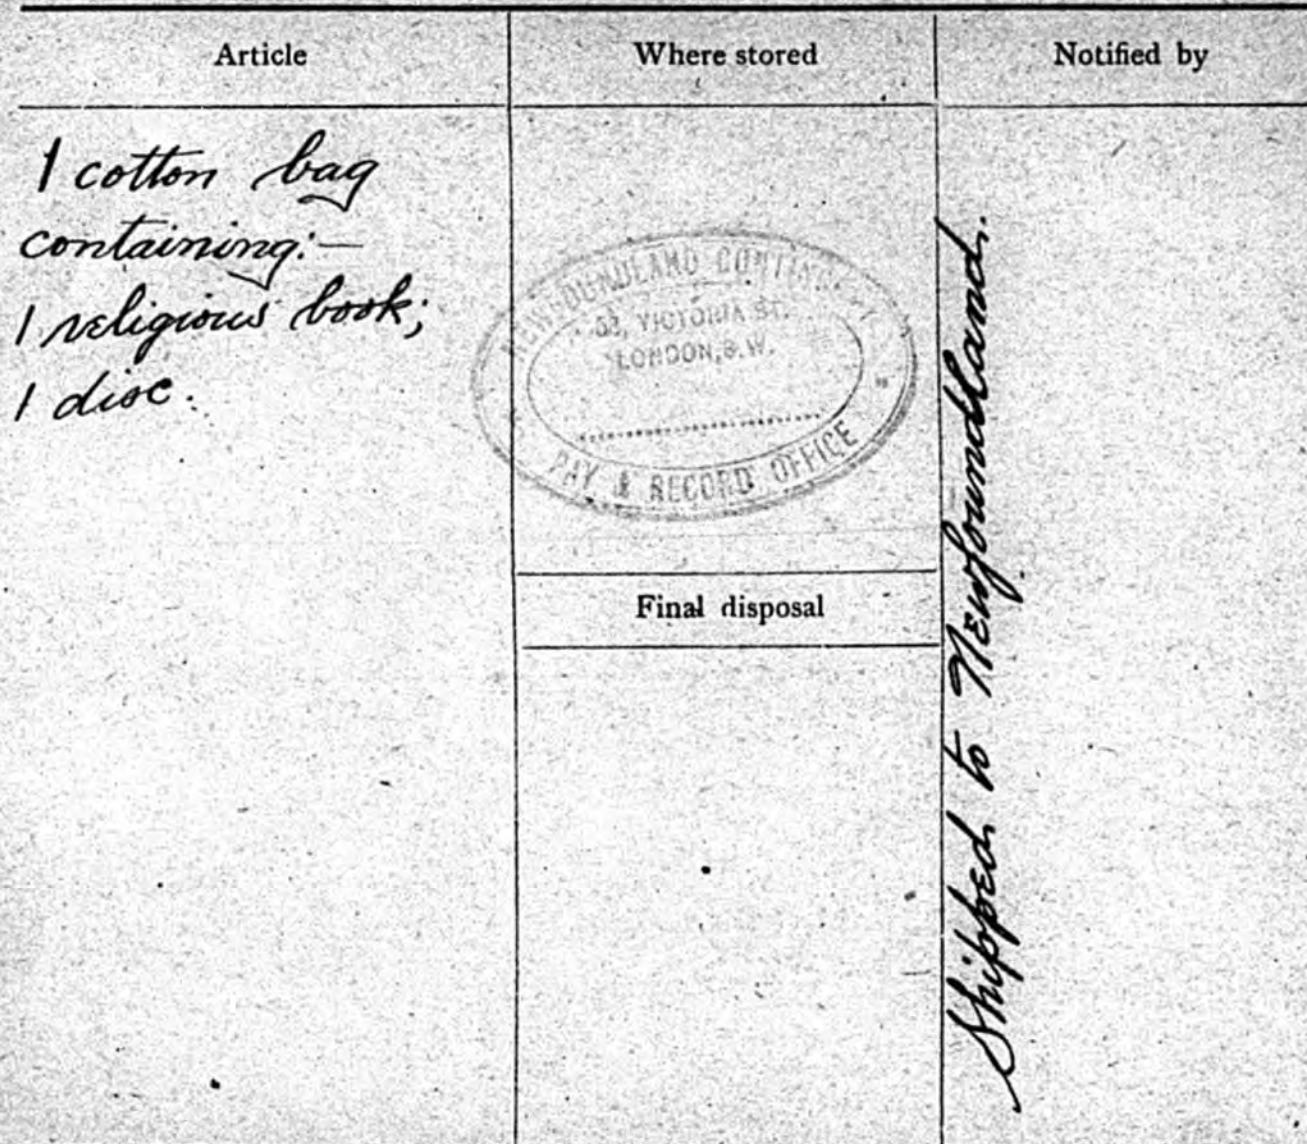 Article
Where stored
Notified by
1 cotton bag
containing:—
1 religious book;
1 disc.
NEWFOUNDLAND CONTINGENT
VICTORIA ST.
LONDON, S.W.
PAY & RECORD OFFICE
Final disposal
Shipped to Newfoundland.